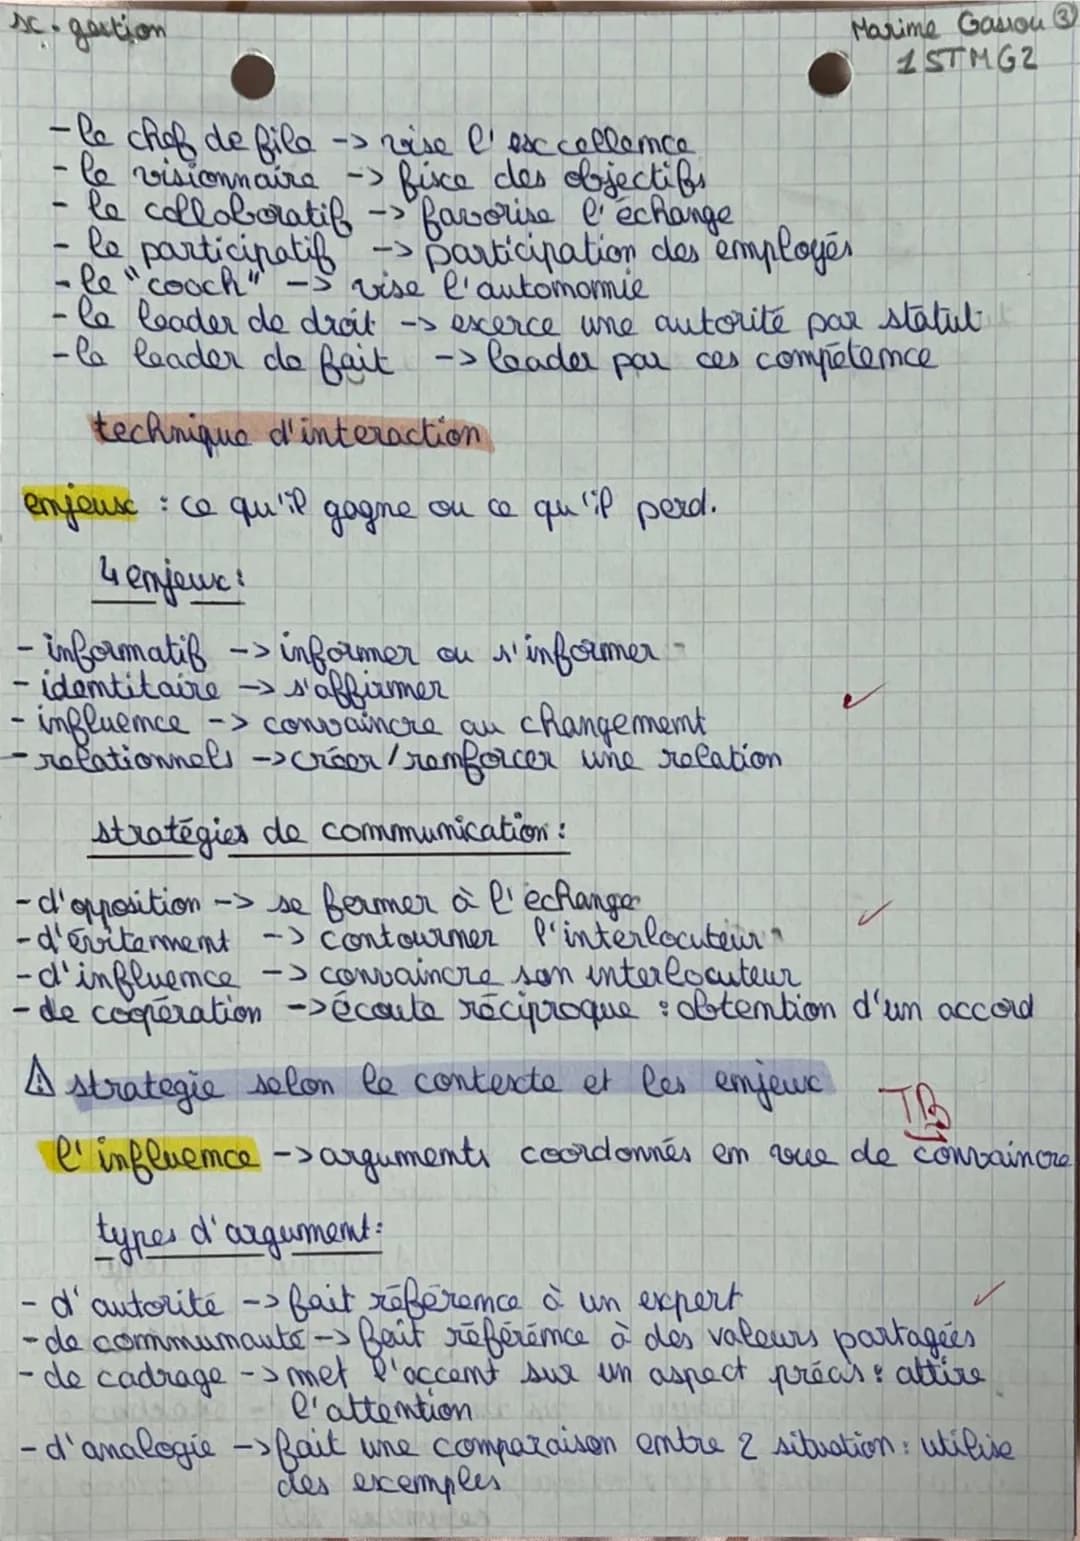 sc. gestion
Maxime Gassou ③
1STMG2
- le chef de file -> vise l'excellence
- le visionnaire -> fixe des objectifs
- le colloboratif -> favorise l'échange
- le participatif -> participation des employés
- le "coach" -> vise l'automomie
- le leader de droit -> exerce une autorité par statut
- le leader de fait -> leader par ces compétence
technique d'interaction
enjeux : ce qu'il gagne ou ce qu'il perd.
4 enjeux :
- informatif -> informer ou s'informer
- identitaire -> s'affirmer
- influence -> convaincre au changement
- relationnels -> créer/renforcer une relation
stratégies de communication :
- d'opposition -> se fermer à l'échange
- d'évitement -> contourner l'interlocuteur
- d'influence -> convaincre son interlocuteur
- de coopération -> écoute réciproque : obtention d'un accord
⚠ strategie selon le contexte et les enjeux
TB
l'influence -> arguments coordonnés en vue de convaincre
types d'argument :
- d'autorité -> fait référence à un expert
- de communauté -> fait référence à des valeurs partagées
- de cadrage -> met l'accent sur un aspect précis : attire
l'attention
- d'analogie -> fait une comparaison entre 2 situation : utilise
des exemples